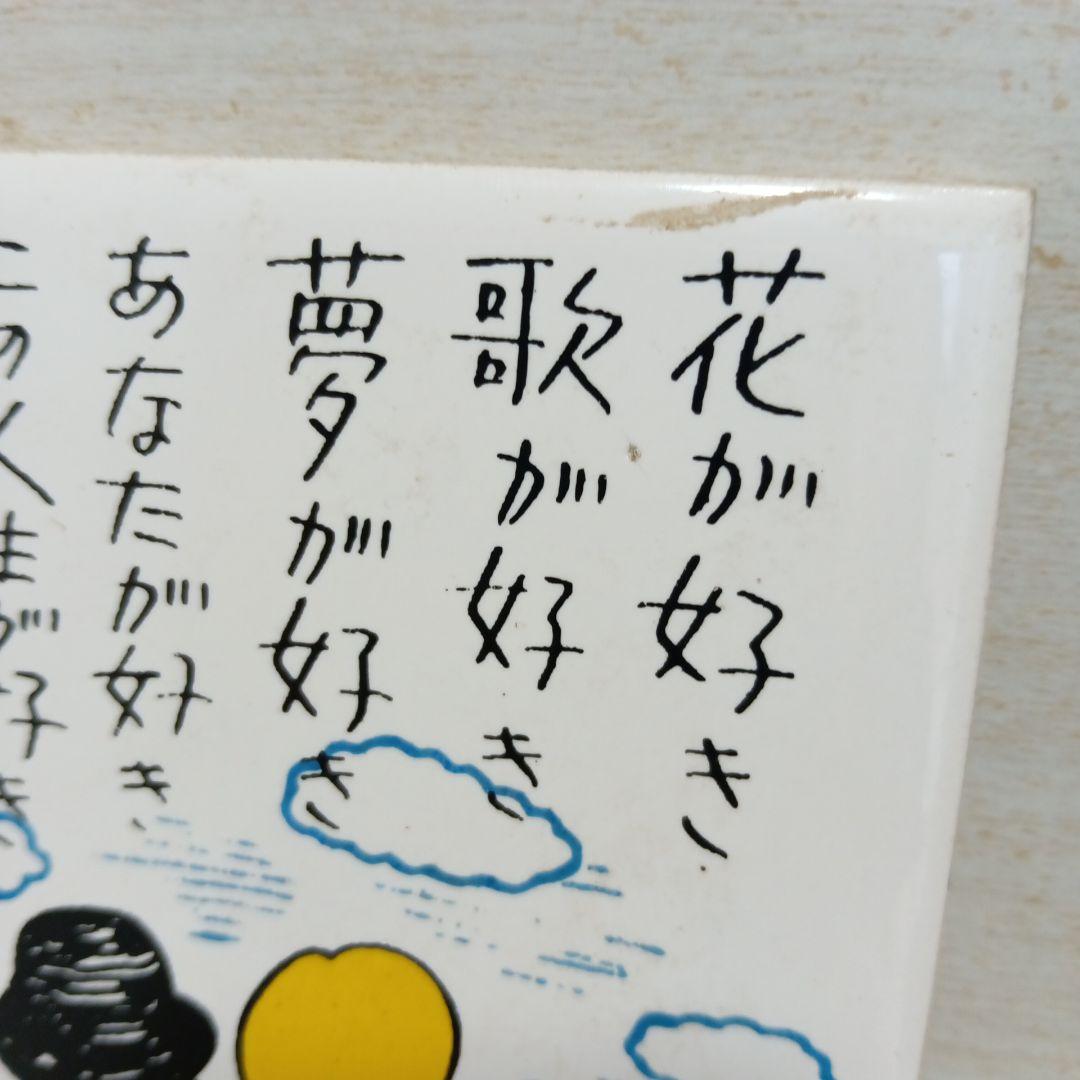 花が好き
歌が好き
夢が好き
あなたが好き
この人生が好き